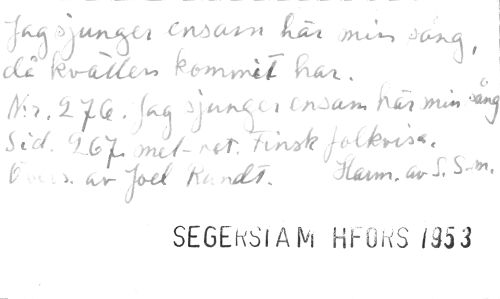 Jag sjunger ensam här min sång,
då kvällen kommit har.
Nr. 276. Jag sjunger ensam här min sång
Sid. 267. mel-rot. Finsk folkvisa.
Övers. av Joel Rundt. Harm. av S. S-m.
SEGERSTAM HFORS 1953